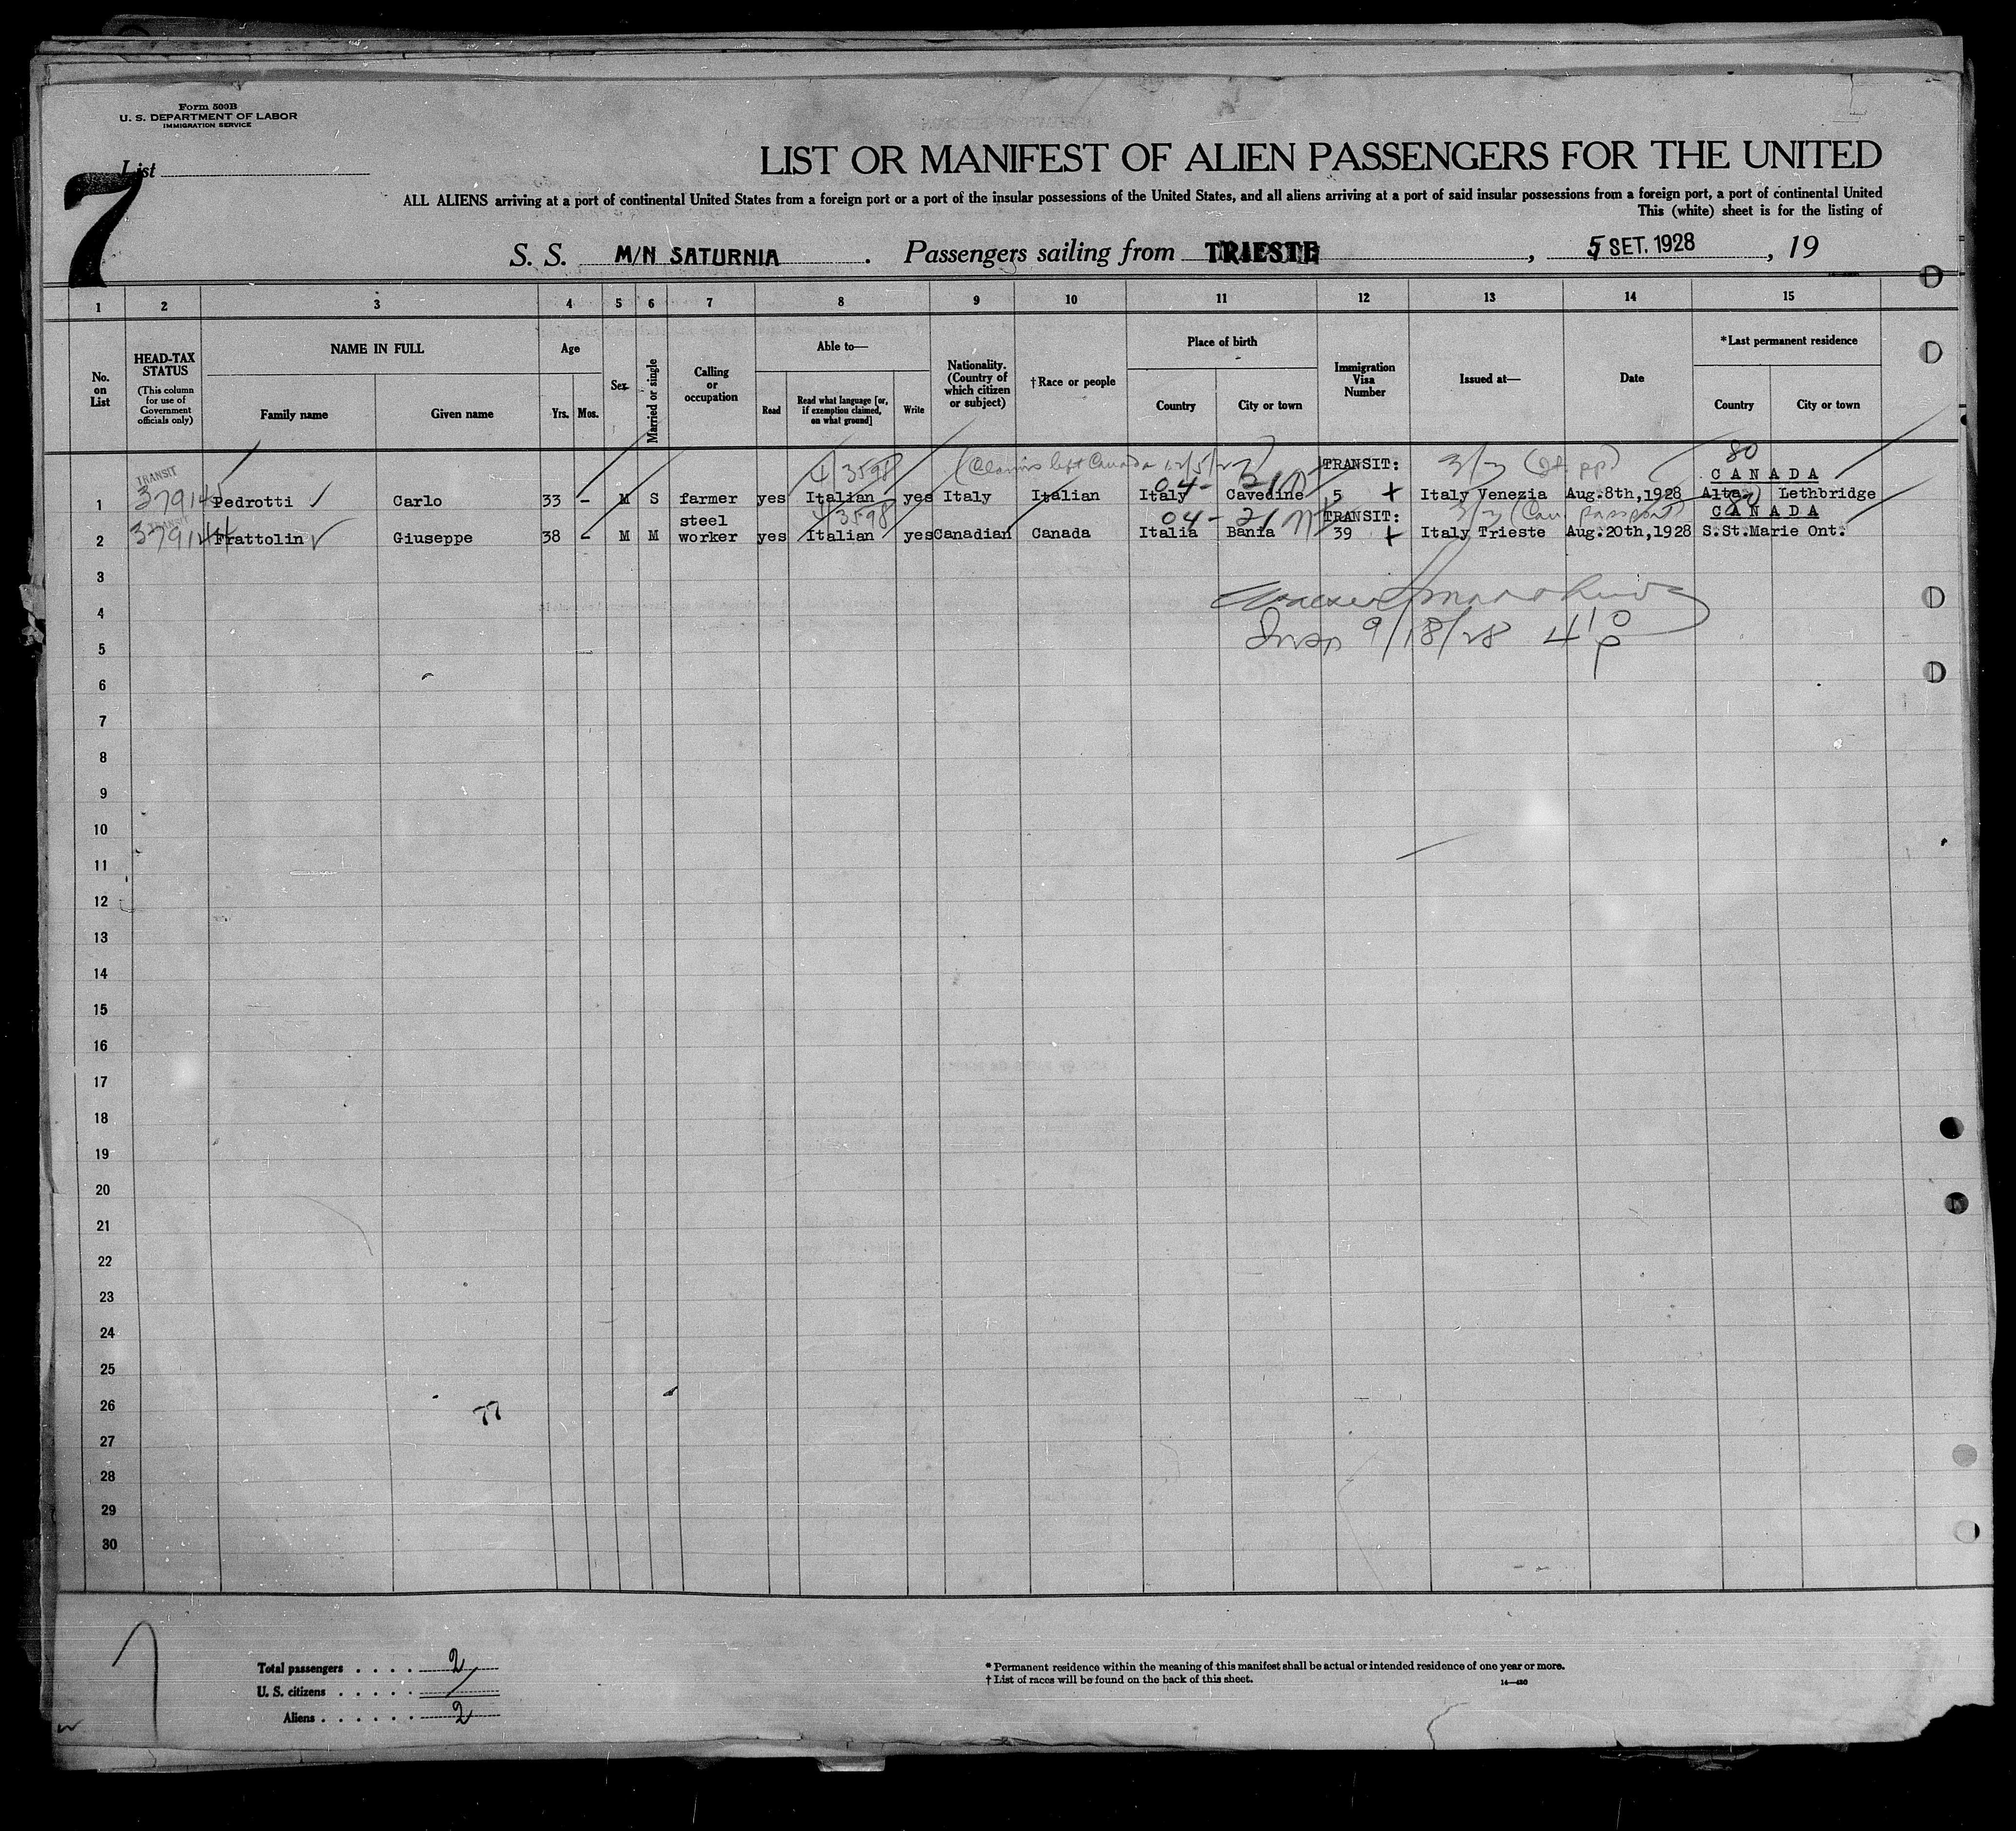 Form 500B
U. S. DEPARTMENT OF LABOR
IMMIGRATION SERVICE
List
7
LIST OR MANIFEST OF ALIEN PASSENGERS FOR THE UNITED
ALL ALIENS arriving at a port of continental United States from a foreign port or a port of the insular possessions of the United States, and all aliens arriving at a port of said insular possessions from a foreign port, a port of continental United
This (white) sheet is for the listing of
S. S. M/N SATURNIA . Passengers sailing from TRIESTE , 5 SET. 1928 , 19
1 2 3 4 5 6 7 8 9 10 11 12 13 14 15
No. on List
HEAD-TAX STATUS
(This column for use of Government officials only)
NAME IN FULL
Family name Given name
Age
Yrs. Mos.
Sex
Married or single
Calling or occupation
Able to—
Read
Read what language [or, if exemption claimed, on what ground]
Write
Nationality. (Country of which citizen or subject)
†Race or people
Place of birth
Country City or town
Immigration Visa Number
Issued at—
Date
*Last permanent residence
Country City or town
TRANSIT 4/3598 (Claims left Canada 12/5/27) 04- TRANSIT: 3/3 (It. pp) 80 CANADA
1 Pedrotti Carlo 33 - M S farmer yes Italian yes Italy Italian Italy Cavedine 5 Italy Venezia Aug.8th,1928 Alta. Lethbridge
TRANSIT steel 4/3598 04-21 TRANSIT: 3/3 (Can. passport) 80 CANADA
2 37914 Frattolin Giuseppe 38 - M M worker yes Italian yes Canadian Canada Italia Bania 39 Italy Trieste Aug.20th,1928 S.St.Marie Ont.
3
4
Insp 9/18/28 4 10 p
5
6
7
8
9
10
11
12
13
14
15
16
17
18
19
20
21
22
23
24
25
26
27
28
29
30
Total passengers . . . . 2
U. S. citizens . . . . . /
Aliens . . . . . . 2
* Permanent residence within the meaning of this manifest shall be actual or intended residence of one year or more.
† List of races will be found on the back of this sheet.
14—430